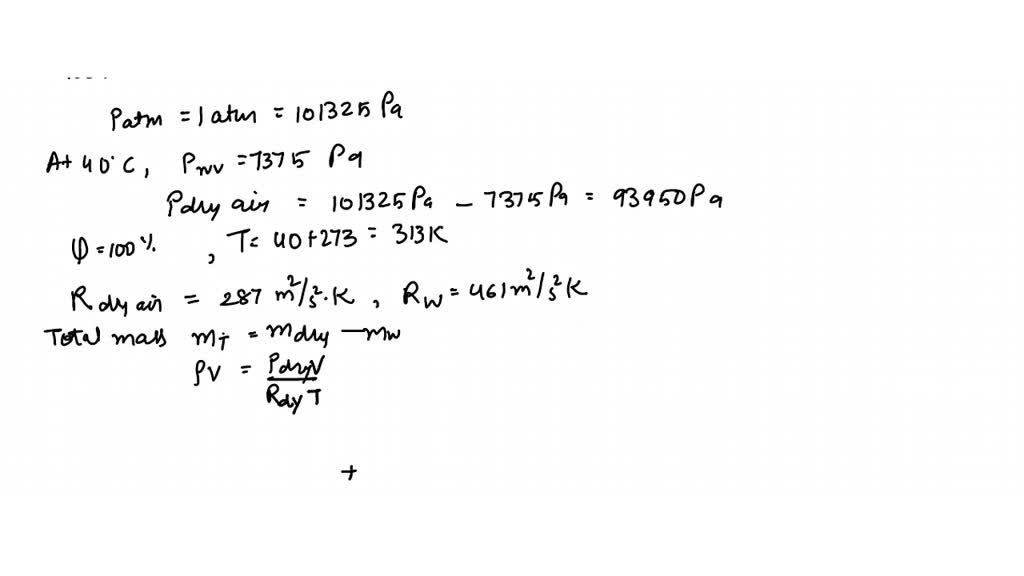 Patm = 1 atm = 101325 Pa
At 40°C, Pwv = 7375 Pa
Pdry air = 101325 Pa - 7375 Pa = 93950 Pa
φ = 100%, T = 40+273 = 313K
Rdry air = 287 m²/s².K, Rw = 461 m²/s²K
Total mass mT = mdry - mw
ρV = PdryV / RdyT
+